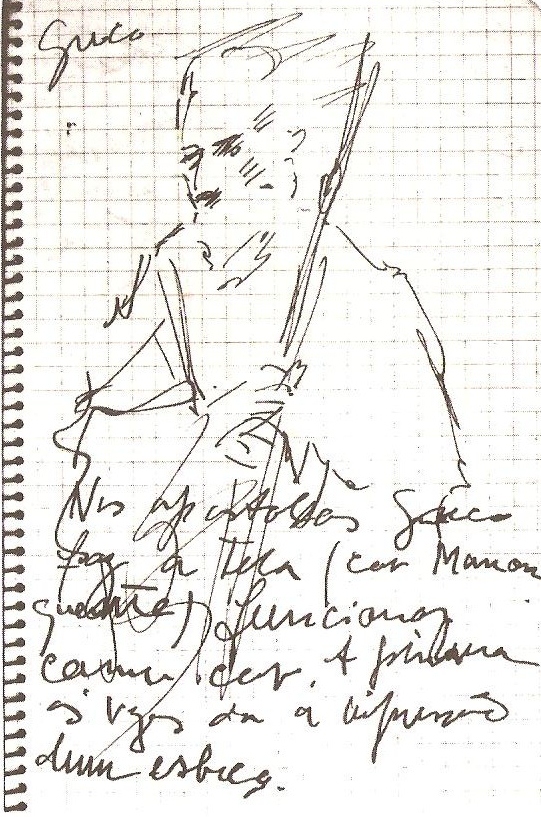 Greco
Nos apostolos Greco
faz a Tela (cor Marron
quente) funcionar
como cor. A pintura
às vezes da a impressão
dum esboço.